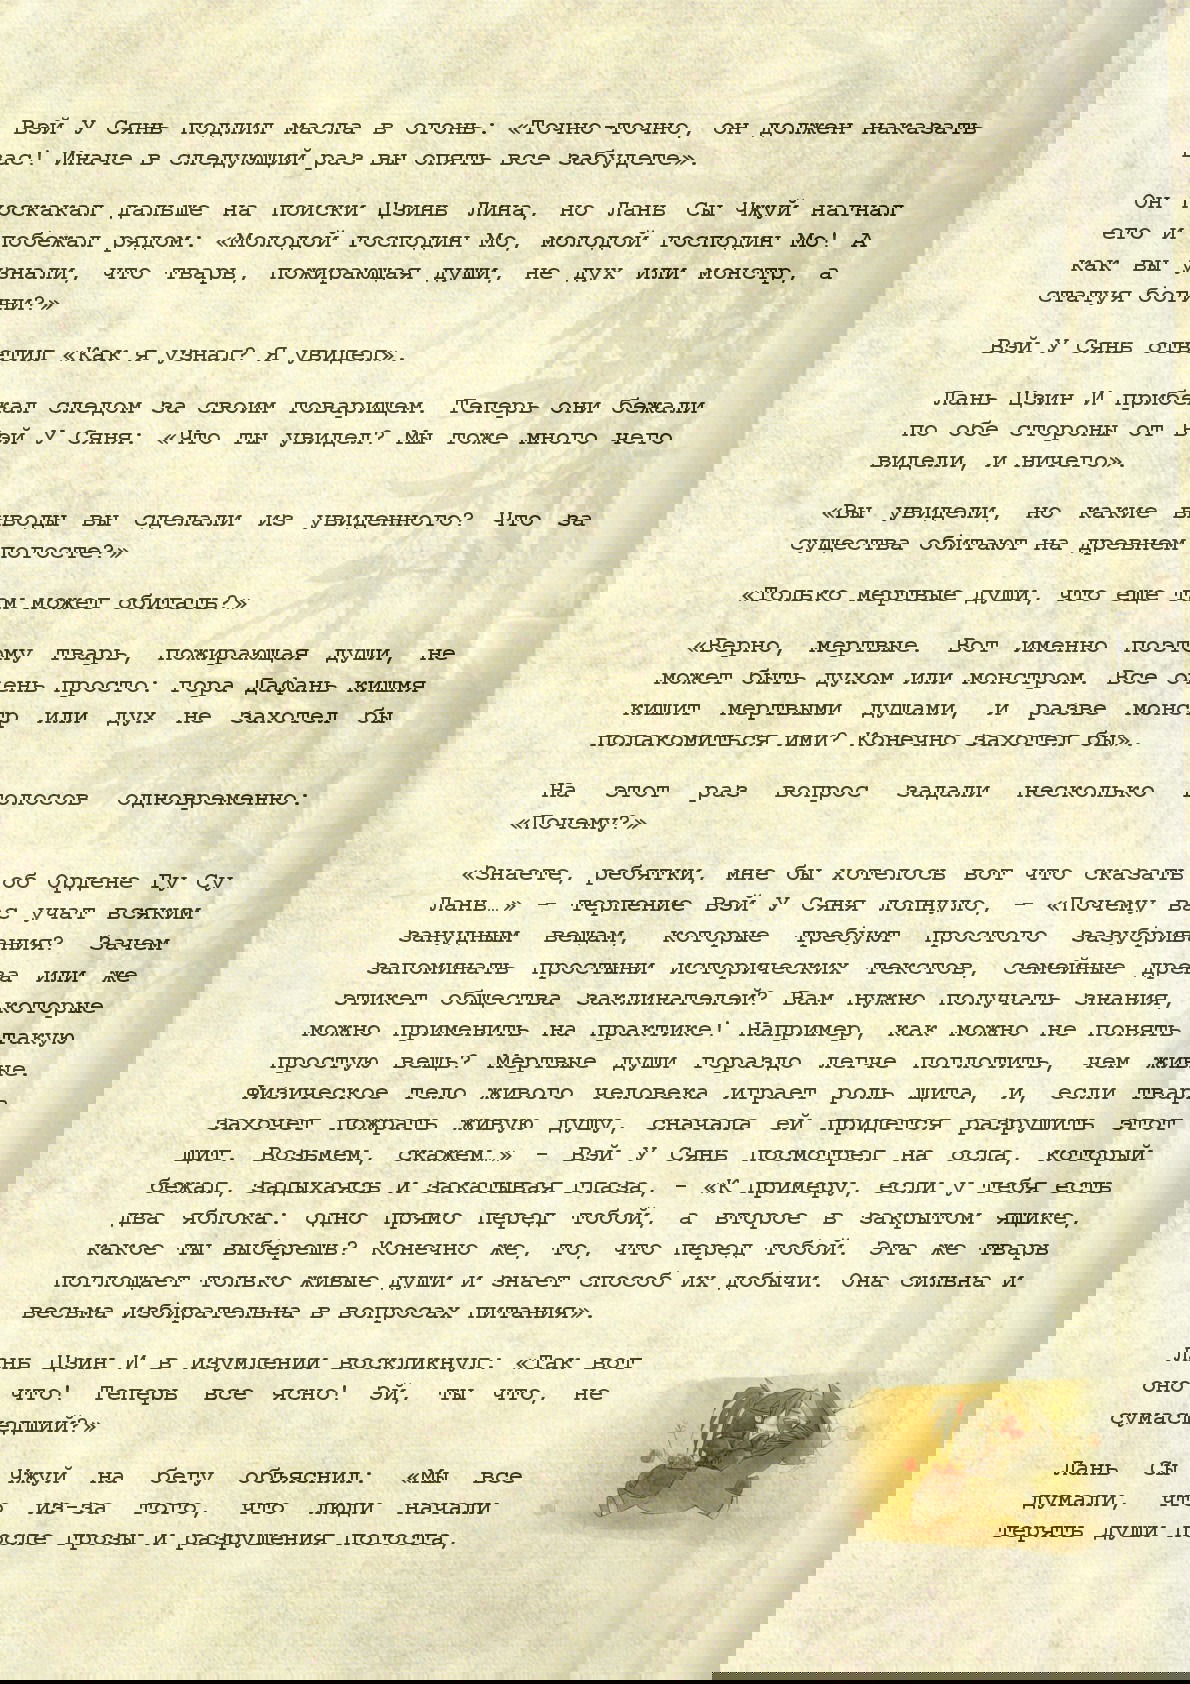 Вэй У Сянь подлил масла в огонь: «Точно-точно, он должен наказать
вас! Иначе в следующий раз вы опять все забудете».
Он поскакал дальше на поиски Цзинь Лина, но Лань Сы Чжуй нагнал
его и побежал рядом: «Молодой господин Мо, молодой господин Мо! А
как вы узнали, что тварь, пожирающая души, не дух или монстр, а
статуя богини?»
Вэй У Сянь ответил «Как я узнал? Я увидел».
Лань Цзин И прибежал следом за своим товарищем. Теперь они бежали
по обе стороны от Вэй У Сяня: «Что ты увидел? Мы тоже много чего
видели, и ничего».
«Вы увидели, но какие выводы вы сделали из увиденного? Что за
существа обитают на древнем погосте?»
«Только мертвые души, что еще там может обитать?»
«Верно, мертвые. Вот именно поэтому тварь, пожирающая души, не
может быть духом или монстром. Все очень просто: гора Дафань кишмя
кишит мертвыми душами, и разве монстр или дух не захотел бы
полакомиться ими? Конечно захотел бы».
На этот раз вопрос задали несколько голосов одновременно:
«Почему?»
«Знаете, ребятки, мне бы хотелось вот что сказать об Ордене Гу Су
Лань…» – терпение Вэй У Сяня лопнуло, – «Почему вас учат всяким
занудным вещам, которые требуют простого зазубривания? Зачем
запоминать простыни исторических текстов, семейные древа или же
этикет общества заклинателей? Вам нужно получать знания, которые
можно применить на практике! Например, как можно не понять такую
простую вещь? Мертвые души гораздо легче поглотить, чем живые.
Физическое тело живого человека играет роль щита, и, если тварь
захочет пожрать живую душу, сначала ей придется разрушить этот
щит. Возьмем, скажем…» - Вэй У Сянь посмотрел на осла, который
бежал, задыхаясь и закатывая глаза, - «К примеру, если у тебя есть
два яблока: одно прямо перед тобой, а второе в закрытом ящике,
какое ты выберешь? Конечно же, то, что перед тобой. Эта же тварь
поглощает только живые души и знает способ их добычи. Она сильна и
весьма избирательна в вопросах питания».
Лань Цзин И в изумлении воскликнул: «Так вот
оно что! Теперь все ясно! Эй, ты что, не
сумасшедший?»
Лань Сы Чжуй на бегу объяснил: «Мы все
думали, что из-за того, что люди начали
терять души после грозы и разрушения погоста,